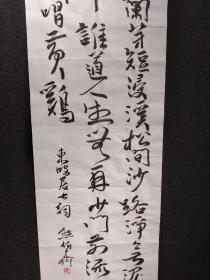 蘭芽短浸溪松間沙路淨無泥
誰道人生無再少門前流
唱黃鷄
東坡居士詞 熊伯齊